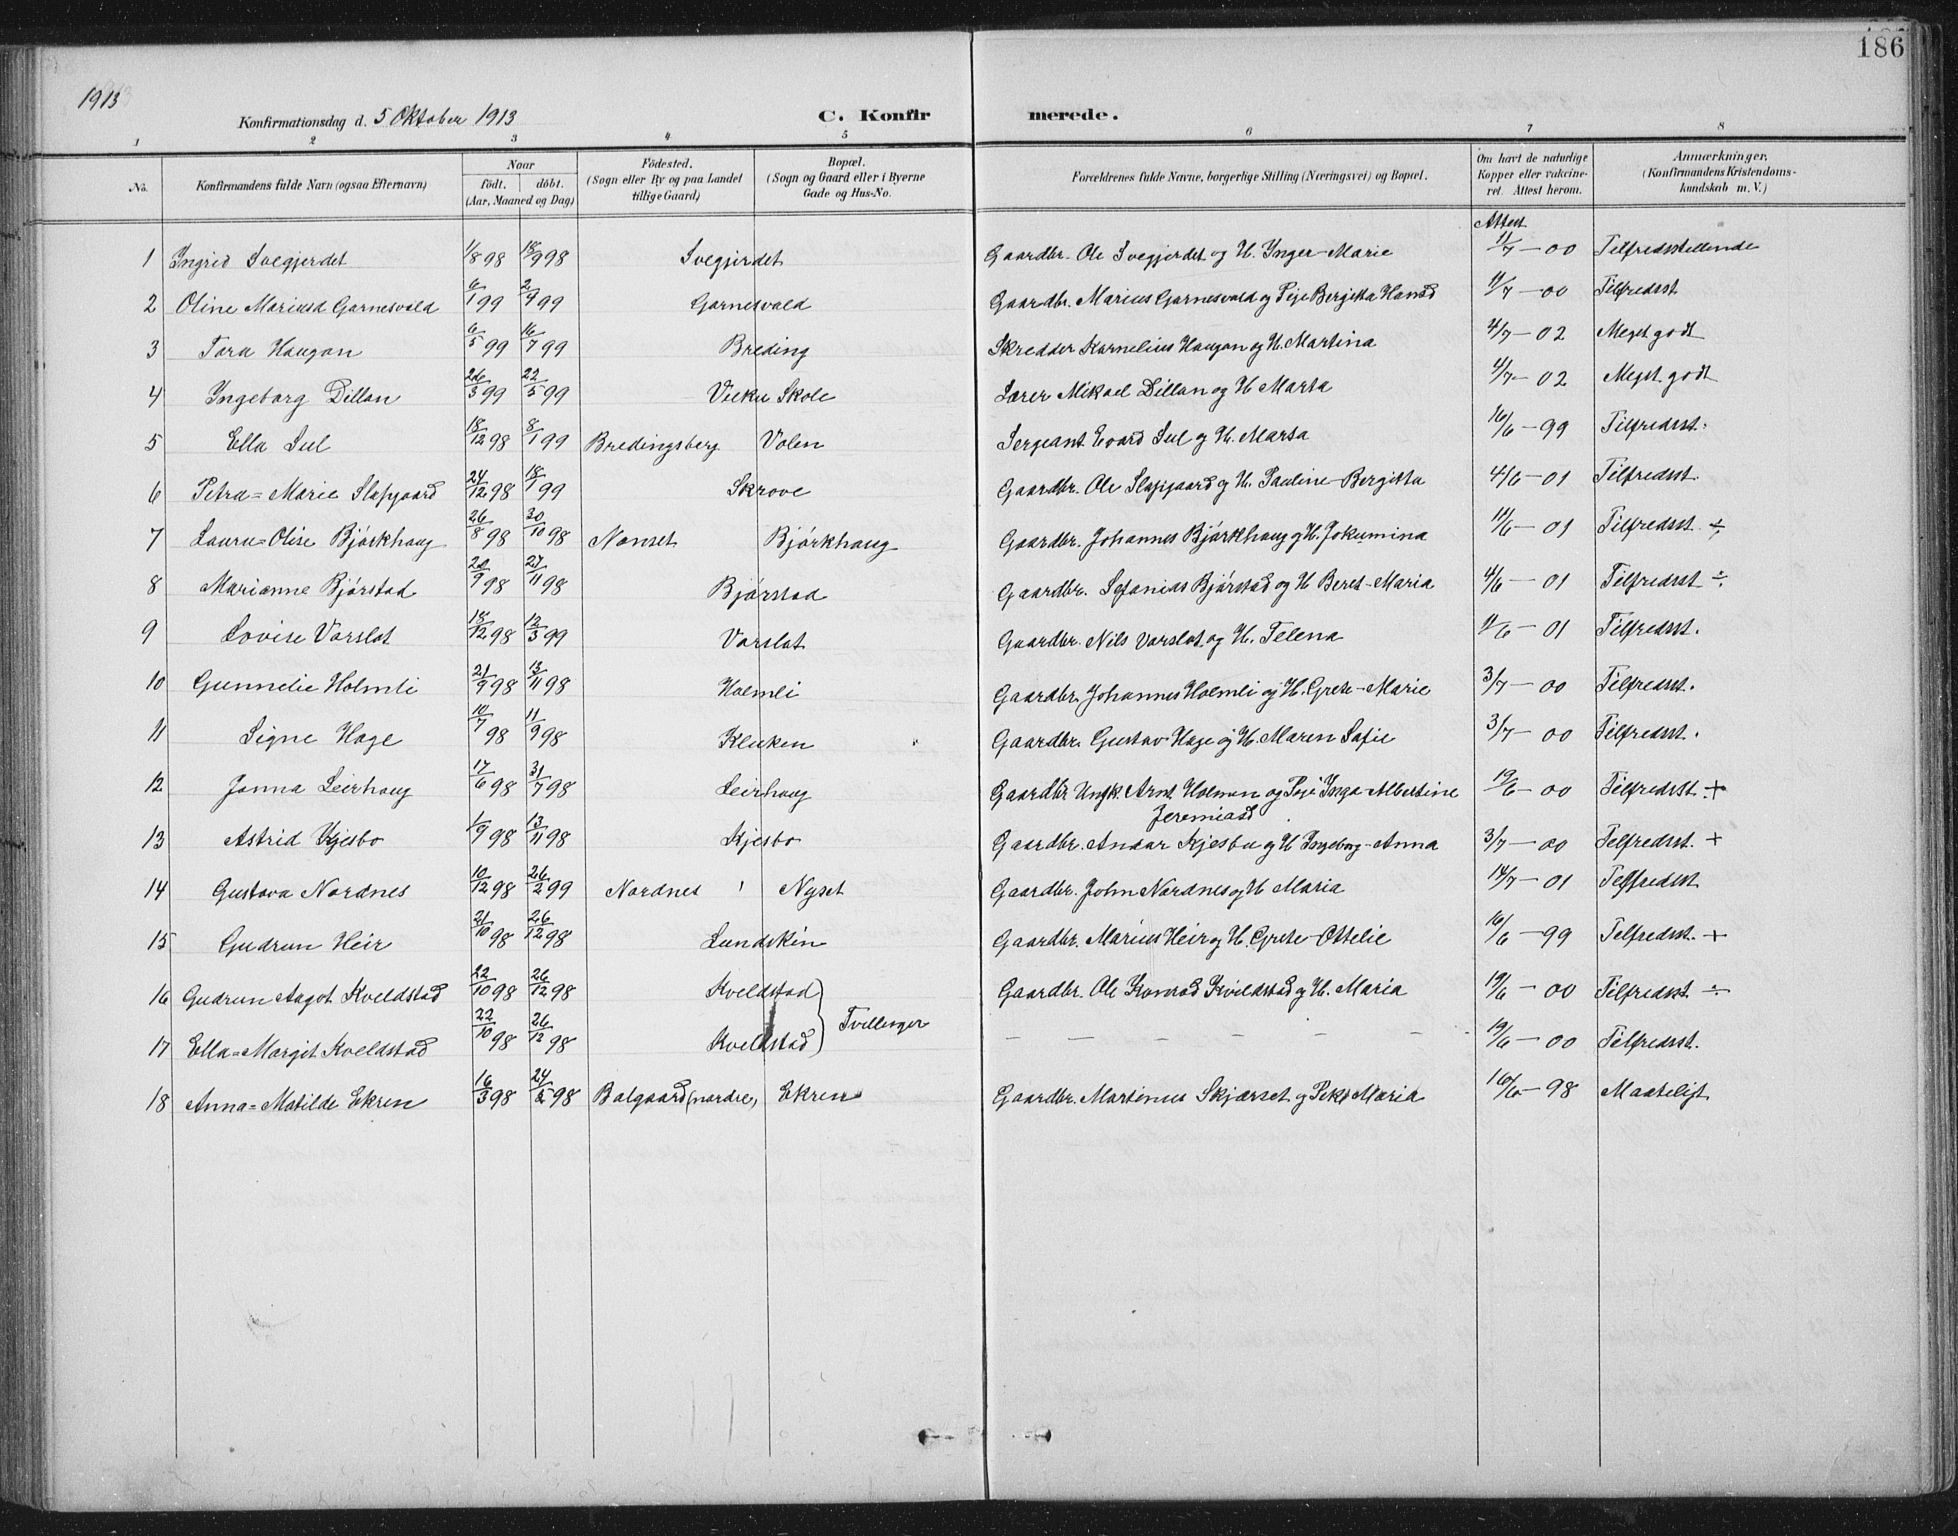 186
1913
Konfirmationsdag d. 5 Oktober 1913
C. Konfirmerede.
1 2 3 4 5 6 7 8
No. Konfirmandens fulde Navn (ogsaa Efternavn) Naar födt. döbt. (Aar, Maaned og Dag) Födested. (Sogn eller By og paa Landet tillige Gaard) Bopæl. (Sogn og Gaard eller i Byerne Gade og Hus-No. Forældrenes fulde Navne, borgerlige Stilling (Næringsvei) og Bopæl. Om havt de naturlige Kopper eller vakcineret. Attest herom. Anmærkninger. (Konfirmandens Kristendomskundskab m. V.)
Attest
1 Ingrid Svegjerdet 1/8 98 18/9 98 Svegjerdet Gaardbr. Ole Svegjerdet og H. Inger-Marie 11/7 — 00 Tilfredsstillende
2 Oline Mariusd Garnesvald 6/1 99 2/4 99 Garnesvald Gaardbr. Marius Garnesvald og Pige Bergitta Hansd 11/7 — 00 Tilfredsst
3 Tora Haugan 6/5 99 16/7 99 Breding Skredder Kornelius Haugan og H. Martina 4/7 — 02 Meget godt
4 Ingeborg Dillan 26/3 99 22/5 99 Vuku Skole Lærer Mikael Dillan og H Marta 4/7 — 02 Meget godt
5 Ella Sul 18/12 98 8/1 99 Bredingsberg Volen Sergeant Evard Sul og H. Marta 16/6 — 99 Tilfredsst.
6 Petra=Marie Slapgaard 24/12 98 18/1 99 Skrove Gaardbr. Ole Slapgaard og H. Pauline-Bergitta 4/6 — 01 Tilfredsst.
7 Laura=Olise Björkhaug 26/8 98 30/10 98 Nonset Björkhaug Gaardbr. Johannes Björkhaug og H. Jokumina 11/6 — 01 Tilfredsst. ÷
8 Marianne Björstad 20/9 98 27/11 98 Björstad Gaardbr. Sefanias Björstad og H Beret-Maria 4/6 — 01 Tilfredsst ÷
9 Lovise Vorslot 18/12 98 12/3 99 Vorslot Gaardbr. Nils Vorslot og H. Telena 11/6 — 01 Tilfredsst.
10 Gunnelie Holmli 21/9 98 13/11 98 Holmli Gaardbr. Johannes Holmli og H. Grete-Marie 3/7 — 00 Tilfredsst.
11 Signe Hage 10/7 98 11/9 98 Kluken Gaardbr. Gustav Hage og H. Maren Sofie 3/7 — 00 Tilfredsst.
12 Janna Leirhaug 17/6 98 31/7 98 Leirhaug Gaardbr Ungk. Arnt Holmen og Pige Inga Albertine Jeremiasd. 19/6 — 00 Tilfredsst. +
13 Astrid Kjesbo 1/9 98 13/11 98 Kjesbo Gaardbr. Andor Kjesbu og H Ingeborg-Anna 3/7 — 00 Tilfredsst. +
14 Gustava Nordnes 10/12 98 26/2 99 Nordnes Nyset Gaardbr. John Nordnes og H Maria 14/7 — 01 Tilfredsst
15 Gudrun Heir 21/10 98 26/12 98 Lundskin Gaardbr. Marius Heir og H. Grete-Ottelie 16/6 — 99 Tilfredsst. +
16 Gudrun Aagot Kveldstad 22/10 98 26/12 98 Kveldstad Gaardbr. Ole Konrad Kveldstad og H. Maria 19/6 — 00 Tilfredsst ÷
Tvillinger
17 Ella=Margit Kveldstad 22/10 98 26/12 98 Kveldstad — — — — — — — 19/6 — 00 Tilfredsst.
18 Anna=Matilde Ekren 16/3 98 24/5 98 Balgaard (nordre) Ekren Gaardbr. Martinus Skjærset og Maria 16/6 — 98 Maateligt